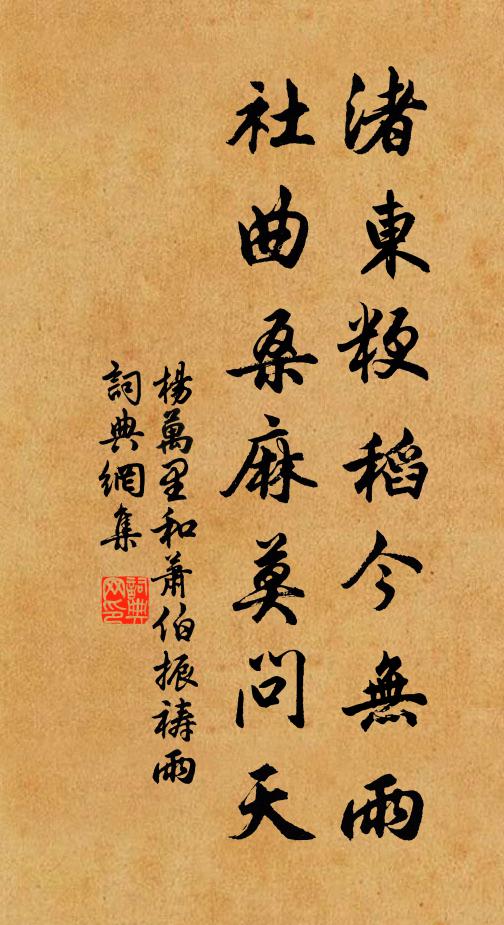 渚東粳稻今無雨
社曲桑麻莫問天
楊萬里和蕭伯振禱雨
詞典網集
詞典网印